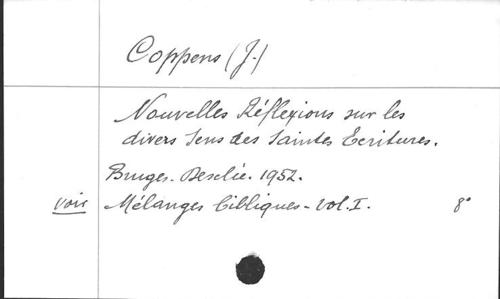 Coppens (J.)
Nouvelles Réflexions sur les
divers Sens des Saintes Ecritures.
Bruges. Desclée. 1952.
voir Mélanges bibliques - vol. I. 8°